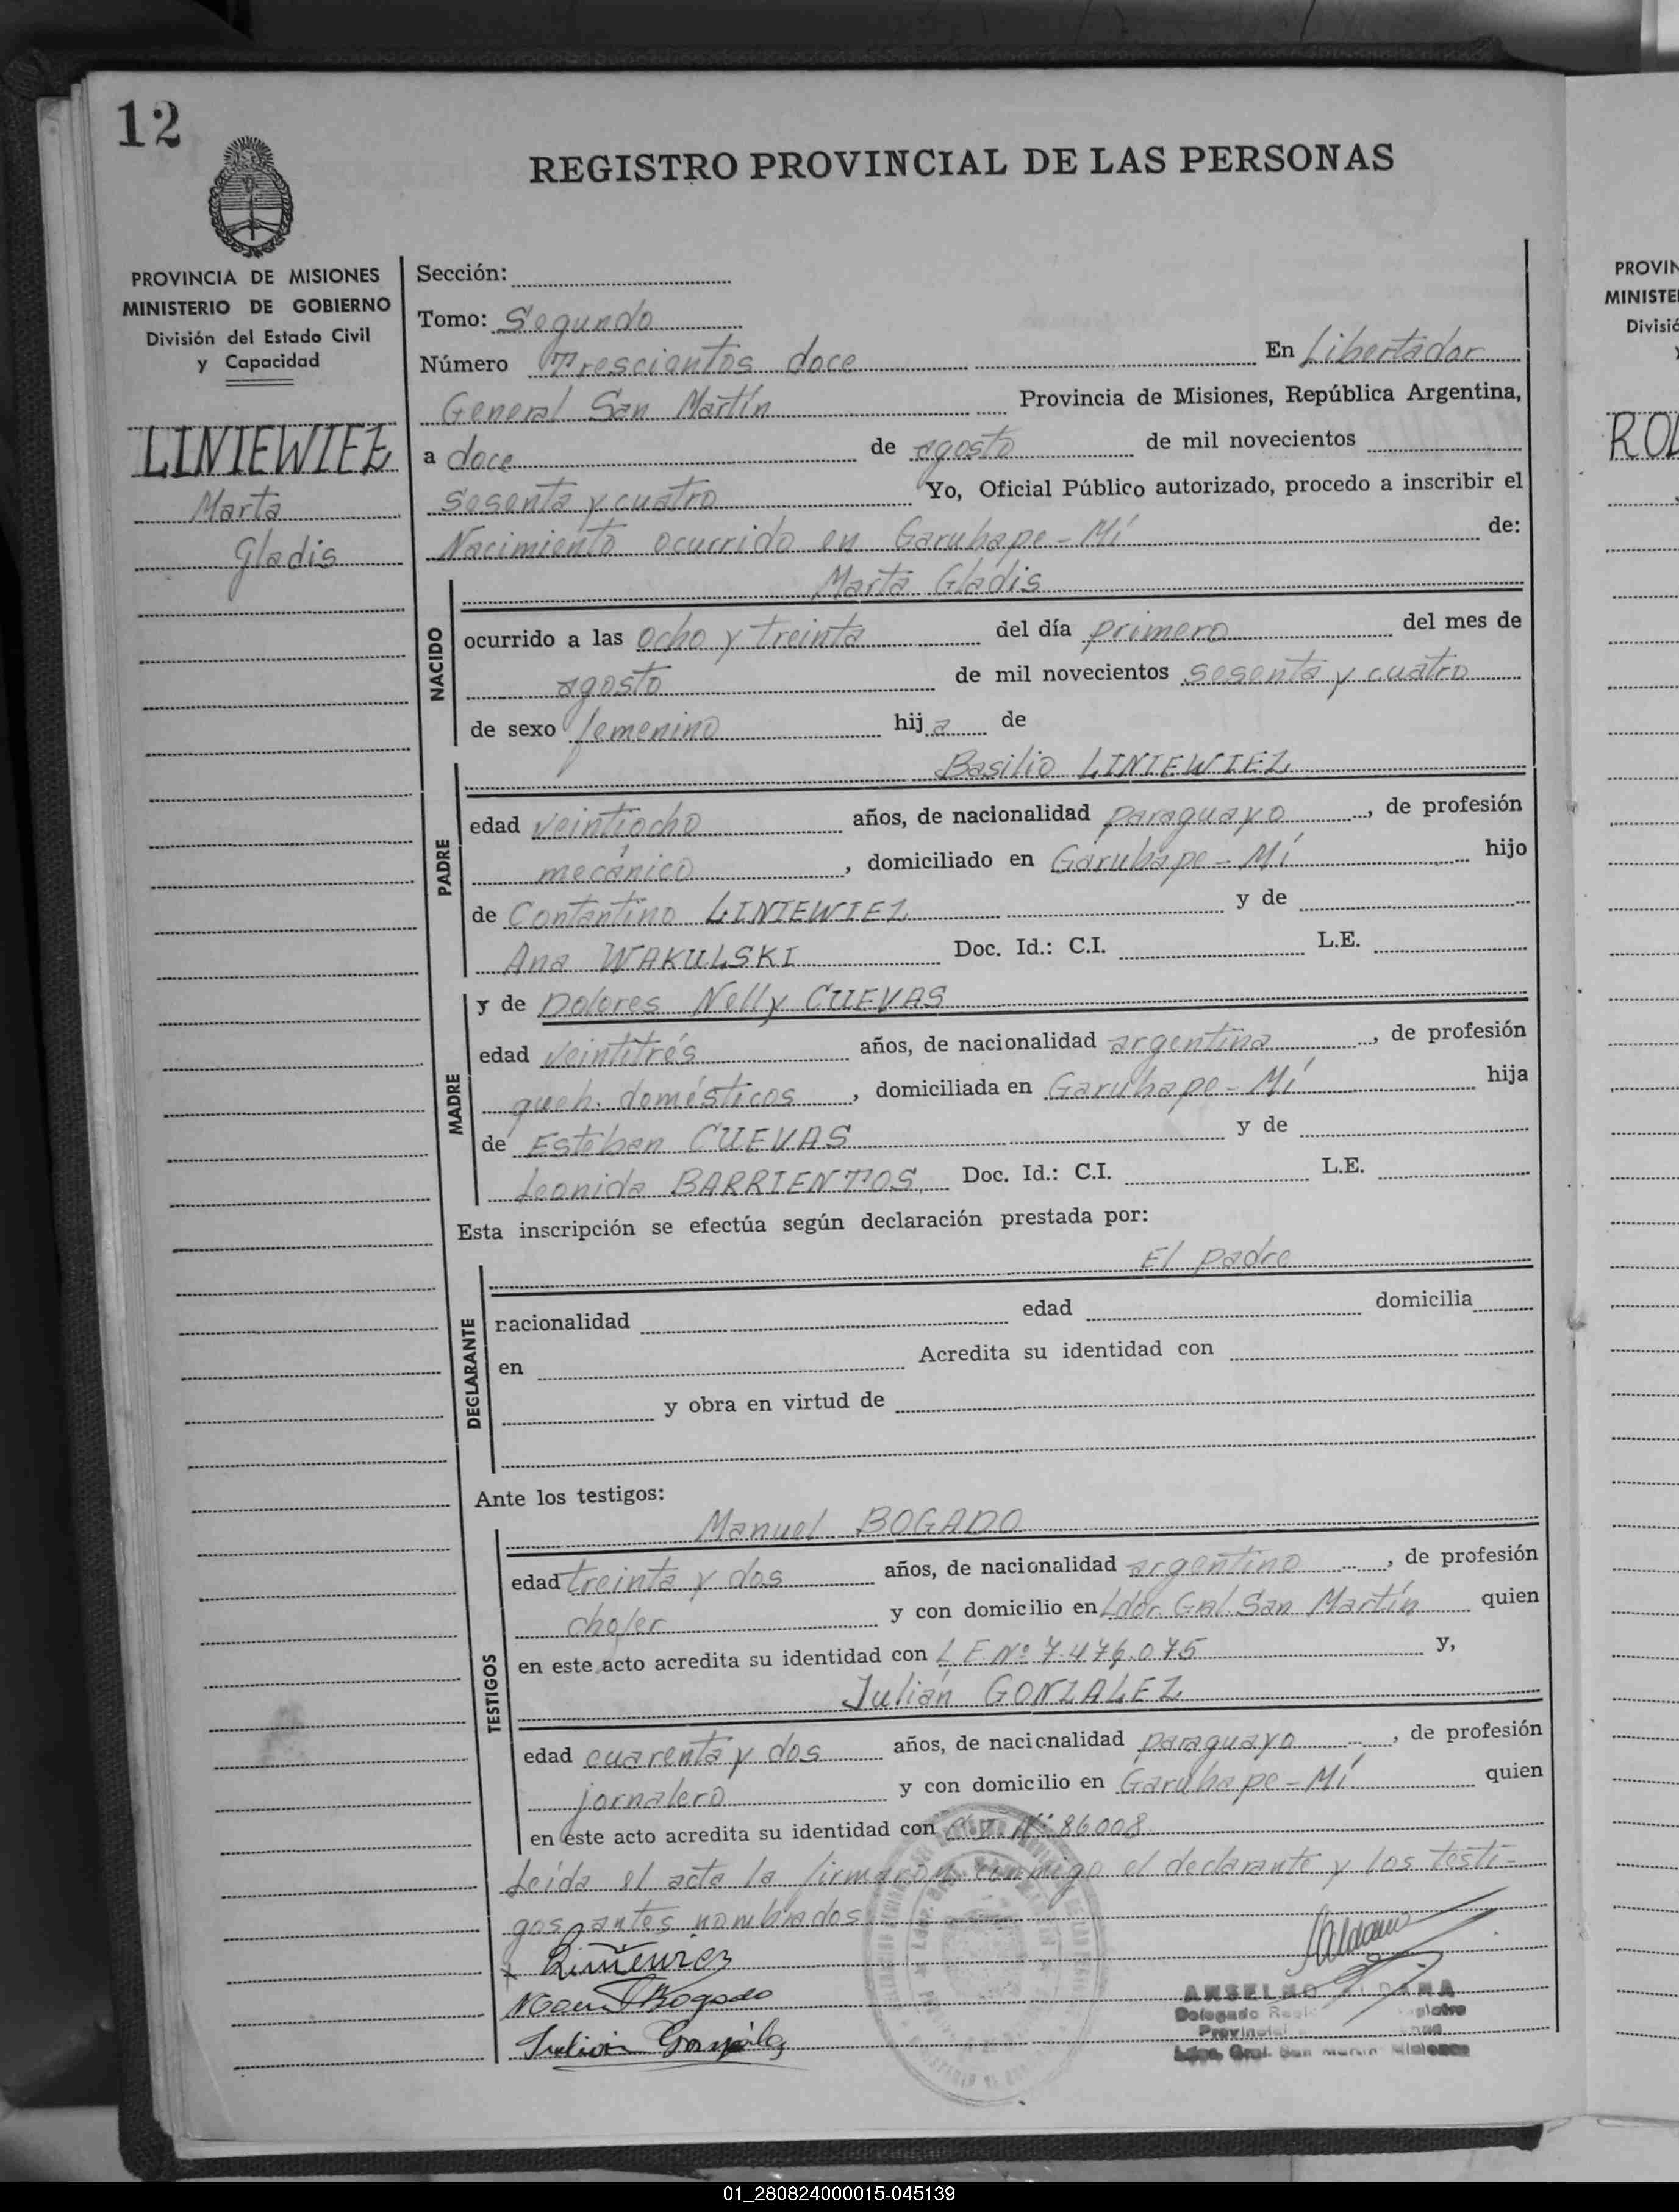 12
REGISTRO PROVINCIAL DE LAS PERSONAS
PROVINCIA DE MISIONES
MINISTERIO DE GOBIERNO
División del Estado Civil
y Capacidad
LINIEWIEZ
Marta
Gladis
Sección:
Tomo: Segundo
Número Trescientos doce En Libertador
General San Martín Provincia de Misiones, República Argentina,
a doce de agosto de mil novecientos
sesenta y cuatro Yo, Oficial Público autorizado, procedo a inscribir el
Nacimiento ocurrido en Garuhape-Mí de:
NACIDO
Marta Gladis
ocurrido a las ocho y treinta del día primero del mes de
agosto de mil novecientos sesenta y cuatro
de sexo femenino hija de
PADRE
Basilio LINIEWIEZ
edad veintiocho años, de nacionalidad paraguayo, de profesión
mecánico, domiciliado en Garuhape-Mí hijo
de Contantino LINIEWIEZ y de
Ana WAKULSKI Doc. Id.: C.I. L.E.
MADRE
y de Dolores Nelly CUEVAS
edad veintitrés años, de nacionalidad argentina, de profesión
queh. domésticos, domiciliada en Garuhape-Mí hija
de Esteban CUEVAS y de
Leonida BARRIENTOS Doc. Id.: C.I. L.E.
Esta inscripción se efectúa según declaración prestada por:
DECLARANTE
El padre
nacionalidad edad domicilia
en Acredita su identidad con
y obra en virtud de
Ante los testigos:
TESTIGOS
Manuel BOGADO
edad treinta y dos años, de nacionalidad argentino, de profesión
chofer y con domicilio en Ldor. Gral San Martín quien
en este acto acredita su identidad con L.E. Nº 7.476.075 y,
Julián GONZALEZ
edad cuarenta y dos años, de nacionalidad paraguayo, de profesión
jornalero y con domicilio en Garuhape-Mí quien
en este acto acredita su identidad con C.I. Nº 86008
Leída el acta la firmaron conmigo el declarante y los testi-
gos antes nombrados
Bogado
Julian Gonzalez
ANSELMO
Delegado
Provincial
Ldor. Gral. San Martín Misiones
PROVIN
MINISTE
Divisió
ROD
01_280824000015-045139